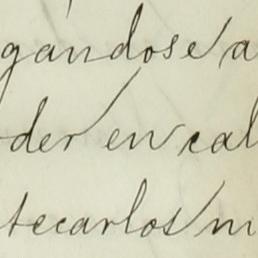 gándose a
der en cal
tecarlos m